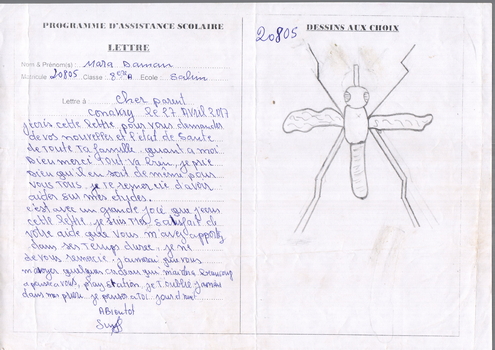 PROGRAMME D'ASSISTANCE SCOLAIRE
LETTRE
Nom & Prénom(s) : Mara Daman
Matricule 20805 Classe : 8ème A Ecole : Salem
Lettre à : Cher parent
conakry le 27 Avril 2017
j'écris cette lettre pour vous demander
de vos nouvelles et l'état de santé
de toute ta famille. quant a moi
Dieu merci tout va bien, je prie
Dieu qu'il en soit de même pour
vous tous. je te remercie d'avoir
aider sur mes etydes.
c'est avec un grande joie que j'ecris
cette lettre. je suis très satisfait de
votre aide que vous m'avez apporté
dans ses temps dure. je ne
de vous remercie. j'aimerai que vous
m'envoyer quelques cadeau qui
a vous, play station. je t'oublie jamais
dans mes . je penser a toi
ABientot
DESSINS AUX CHOIX
20805